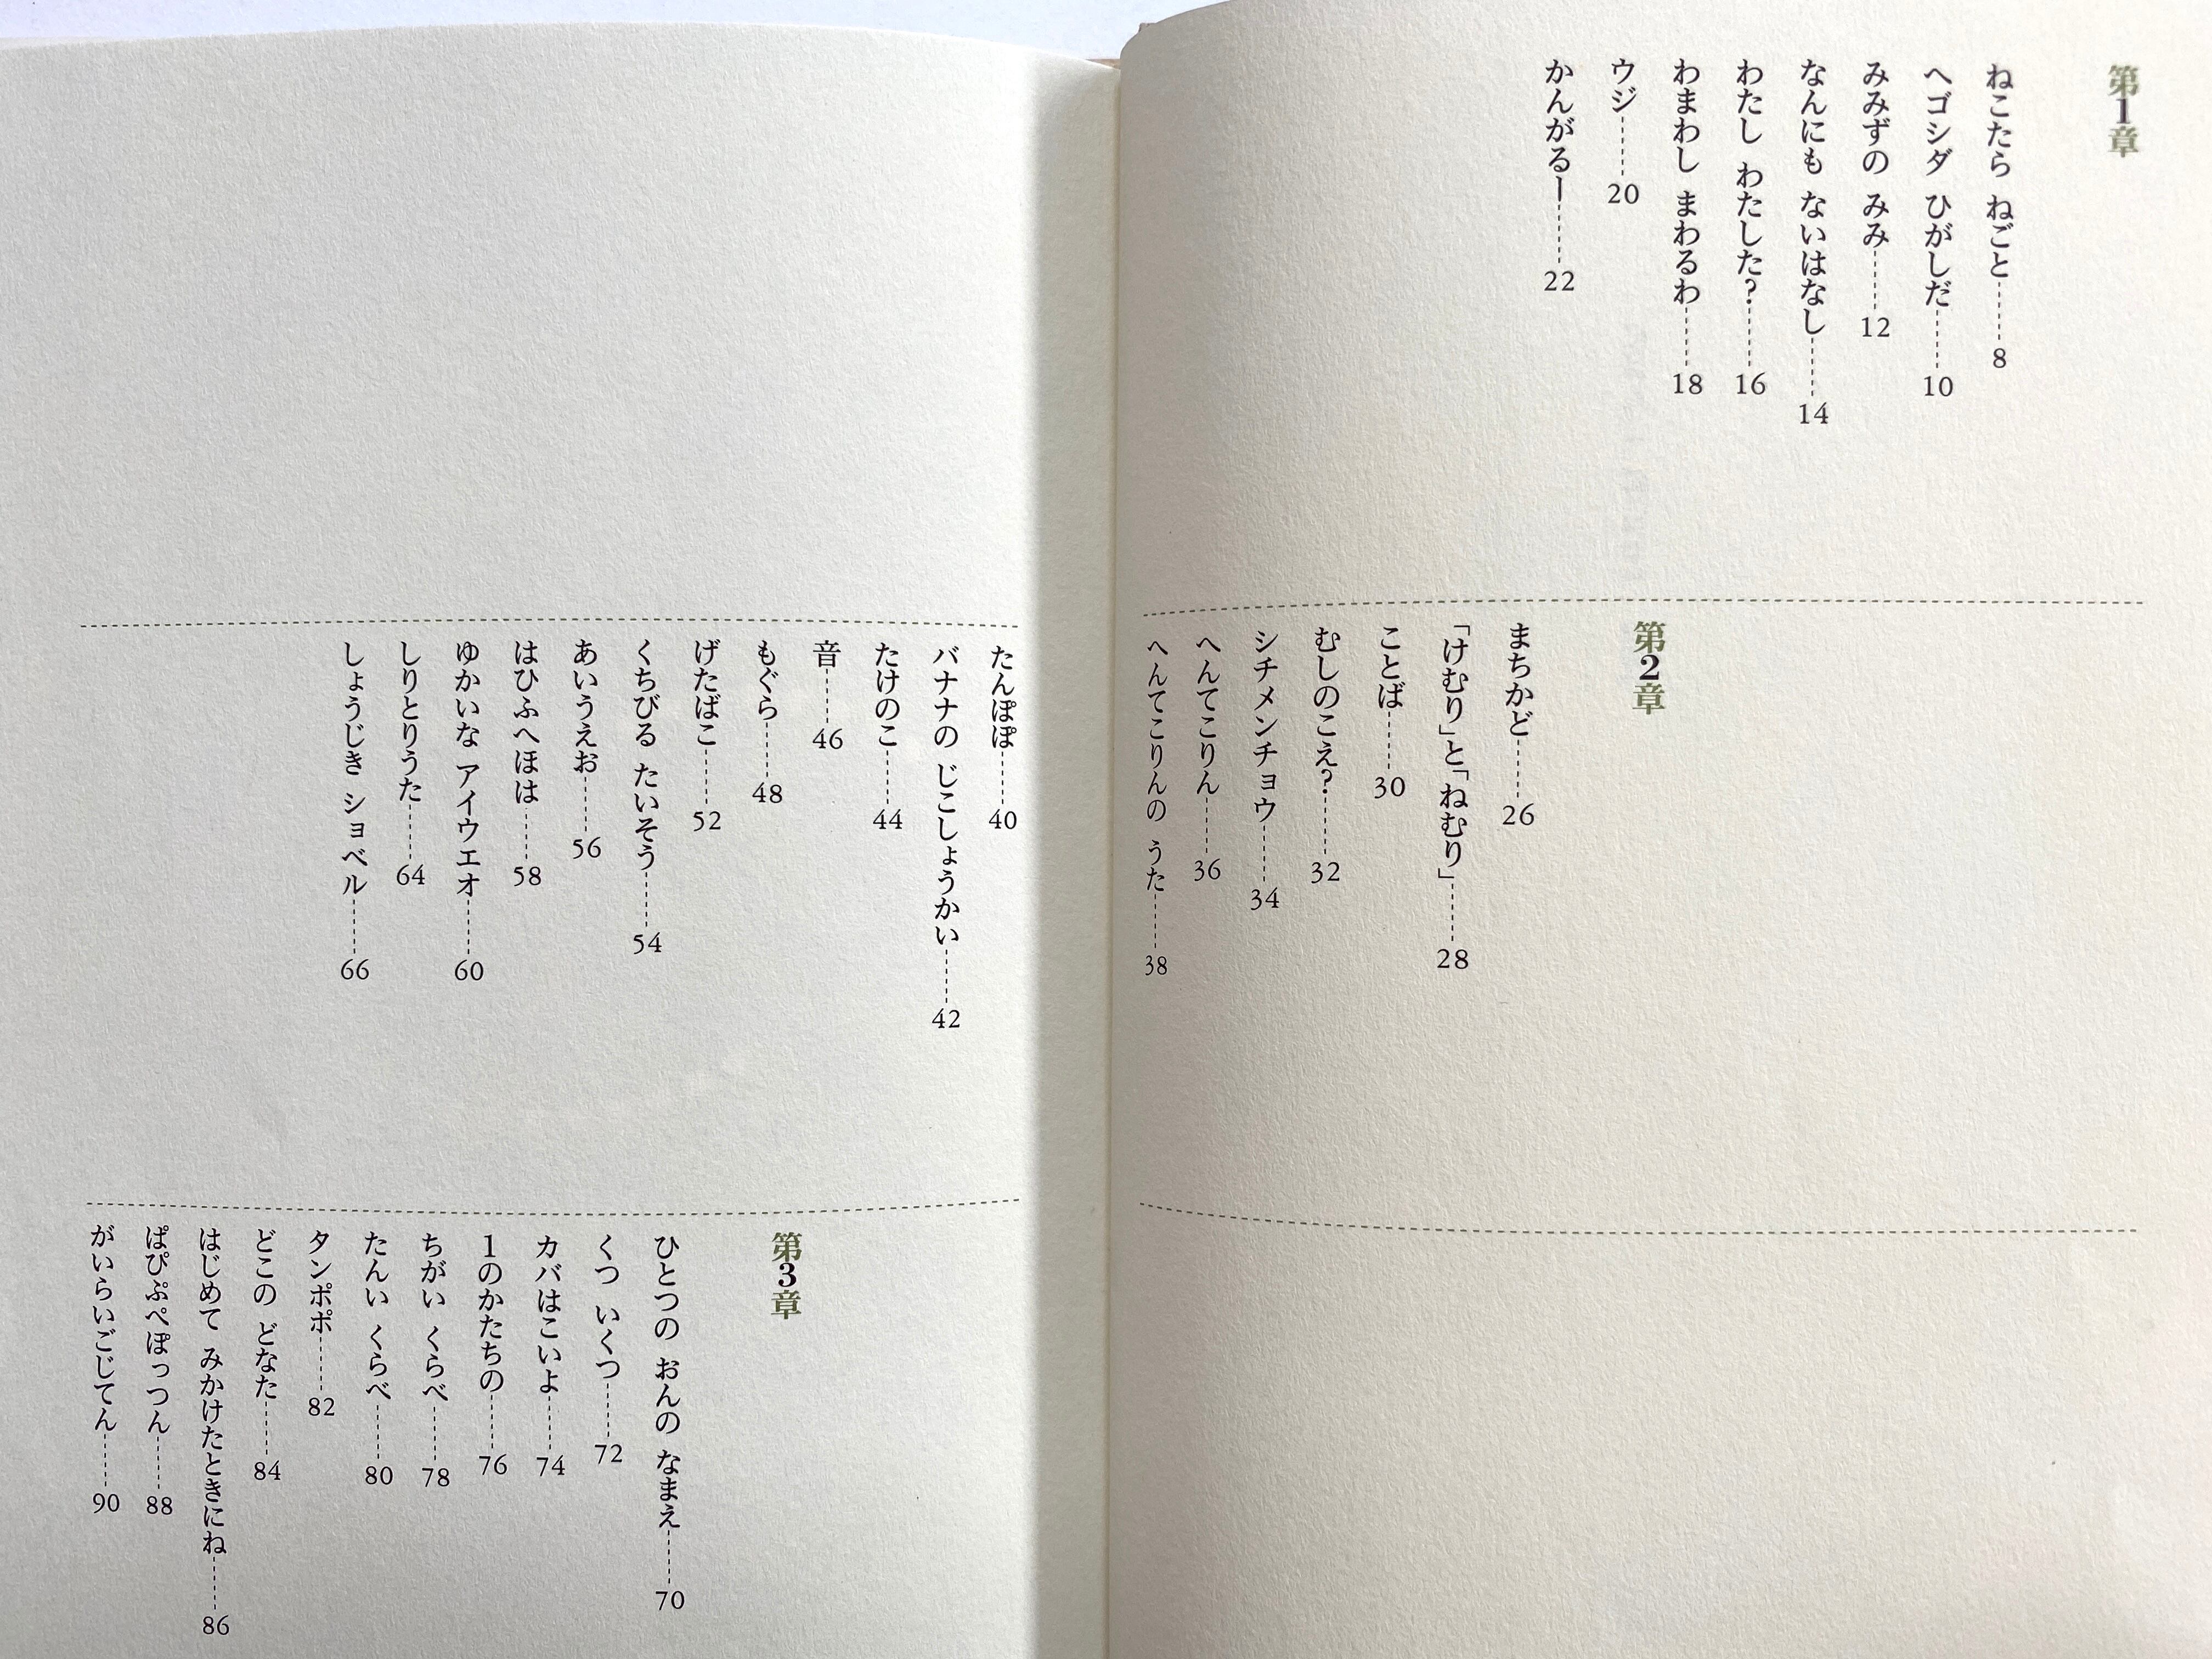 第1章
ねこたら ねごと 8
ヘゴシダ ひがしだ 10
みみずの みみ 12
なんにも ないはなし 14
わたし わたした? 16
わまわし まわるわ 18
ウジ 20
かんがるー 22
第2章
まちかど 26
「けむり」と「ねむり」 28
ことば 30
むしのこえ? 32
シチメンチョウ 34
へんてこりん 36
へんてこりんの うた 38
たんぽぽ 40
バナナの じこしょうかい 42
たけのこ 44
音 46
もぐら 48
げたばこ 52
くちびる たいそう 54
あいうえお 56
はひふへほは 58
ゆかいな アイウエオ 60
しりとりうた 64
しょうじき ショベル 66
第3章
ひとつの おんの なまえ 70
くつ いくつ 72
カバはこいよ 74
1のかたちの 76
ちがい くらべ 78
たんい くらべ 80
タンポポ 82
どこの どなた 84
はじめて みかけたときにね 86
ぱぴぷぺぽっつん 88
がいらいごじてん 90